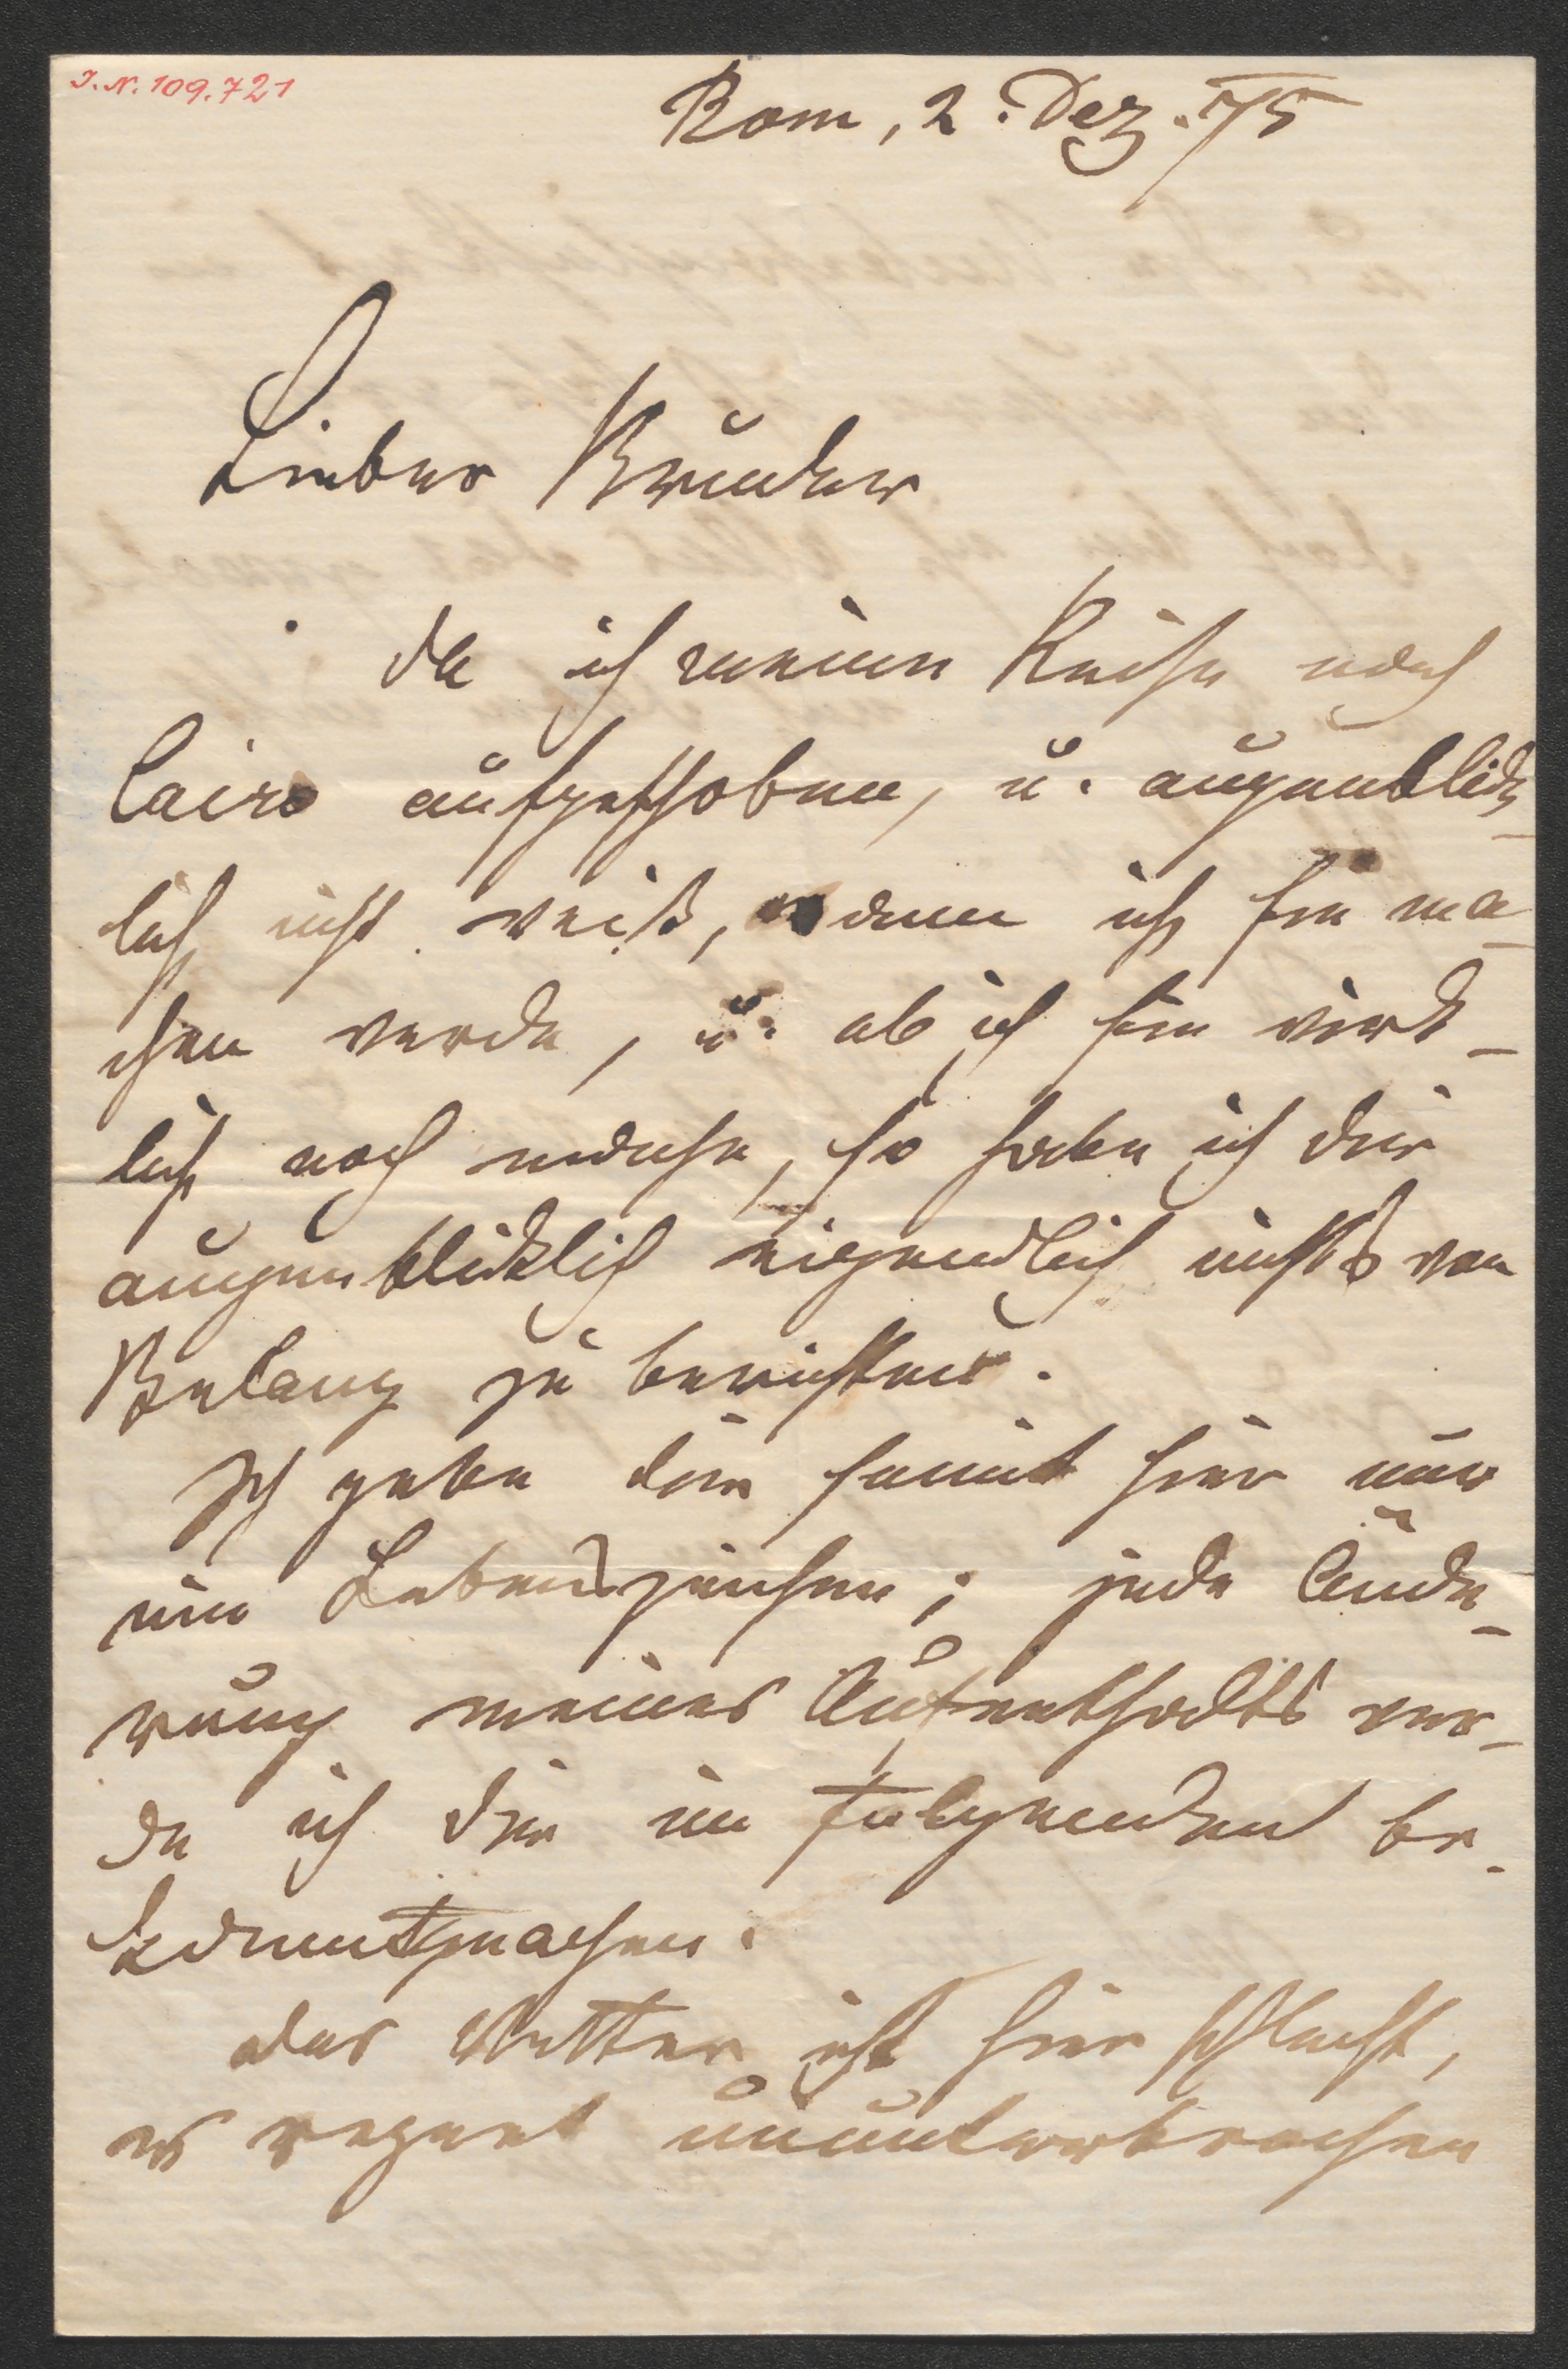 I. N. 109.721
Rom, 2. Dez. 75
Lieber Bruder
da ich meine Reise nach
Cairo aufgeschoben, u. augenblick-
lich nicht weiß, wann ich sie ma-
chen werde, u. ob ich sie wirk-
lich noch mache, so habe ich dir
augenblicklich eigendlich nichts von
Belang zu berichten.
Ich gebe dir somit hier nur
ein Lebenszeichen; jede Ände-
rung meines Aufenthalts wer-
de ich dir im folgenden be-
kanntmachen.
das Wetter ist hier schlecht,
es regnet ununterbrochen